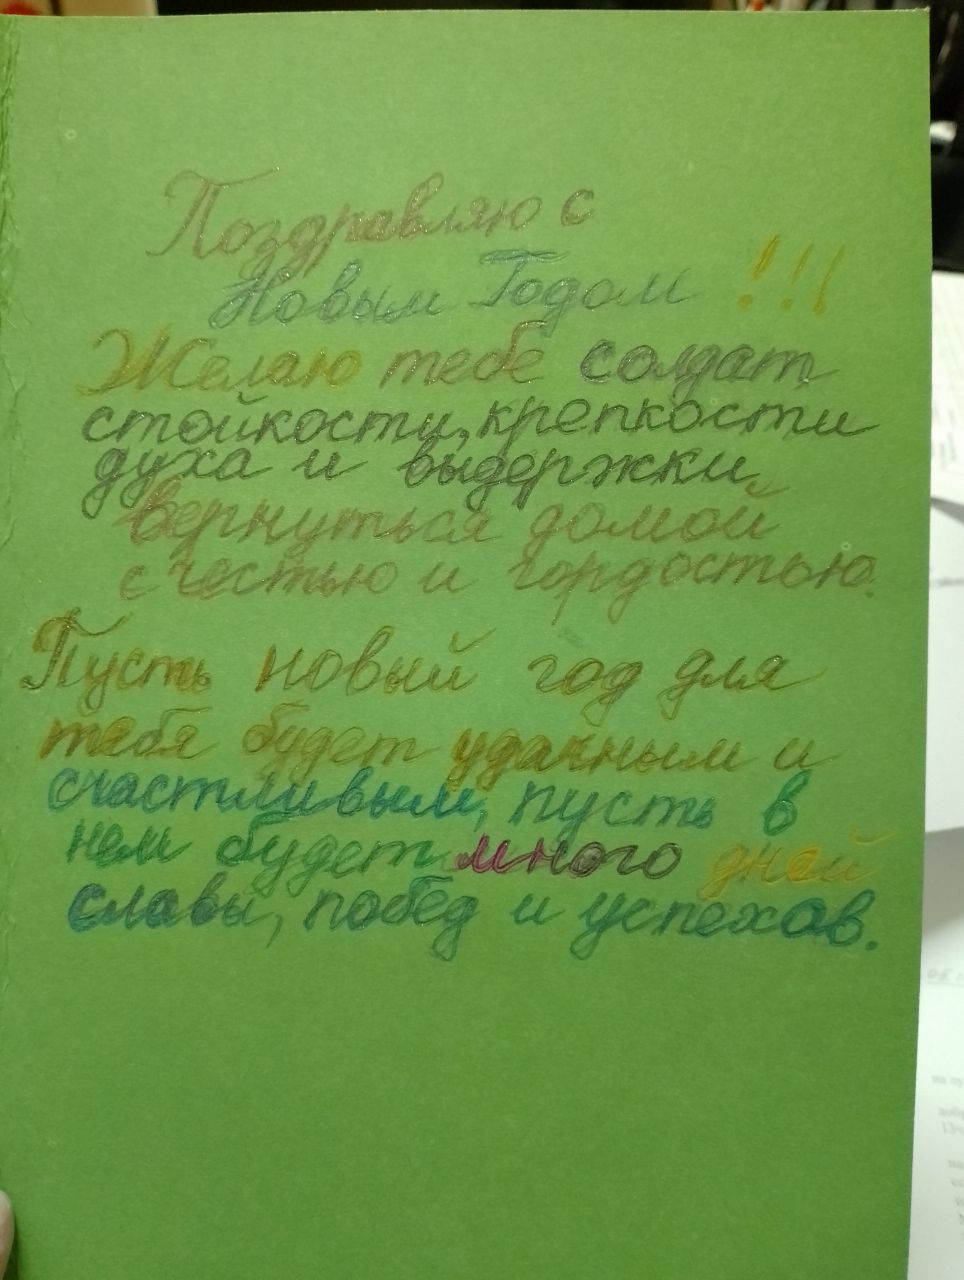 Поздравляю с
Новым Годом !!!
Желаю тебе солдат
стойкости, крепкости
духа и выдержки
вернуться домой
с честью и гордостью.
Пусть новый год для
тебя будет удачным и
счастливым, пусть в
нем будет много дней
славы, побед и успехов.